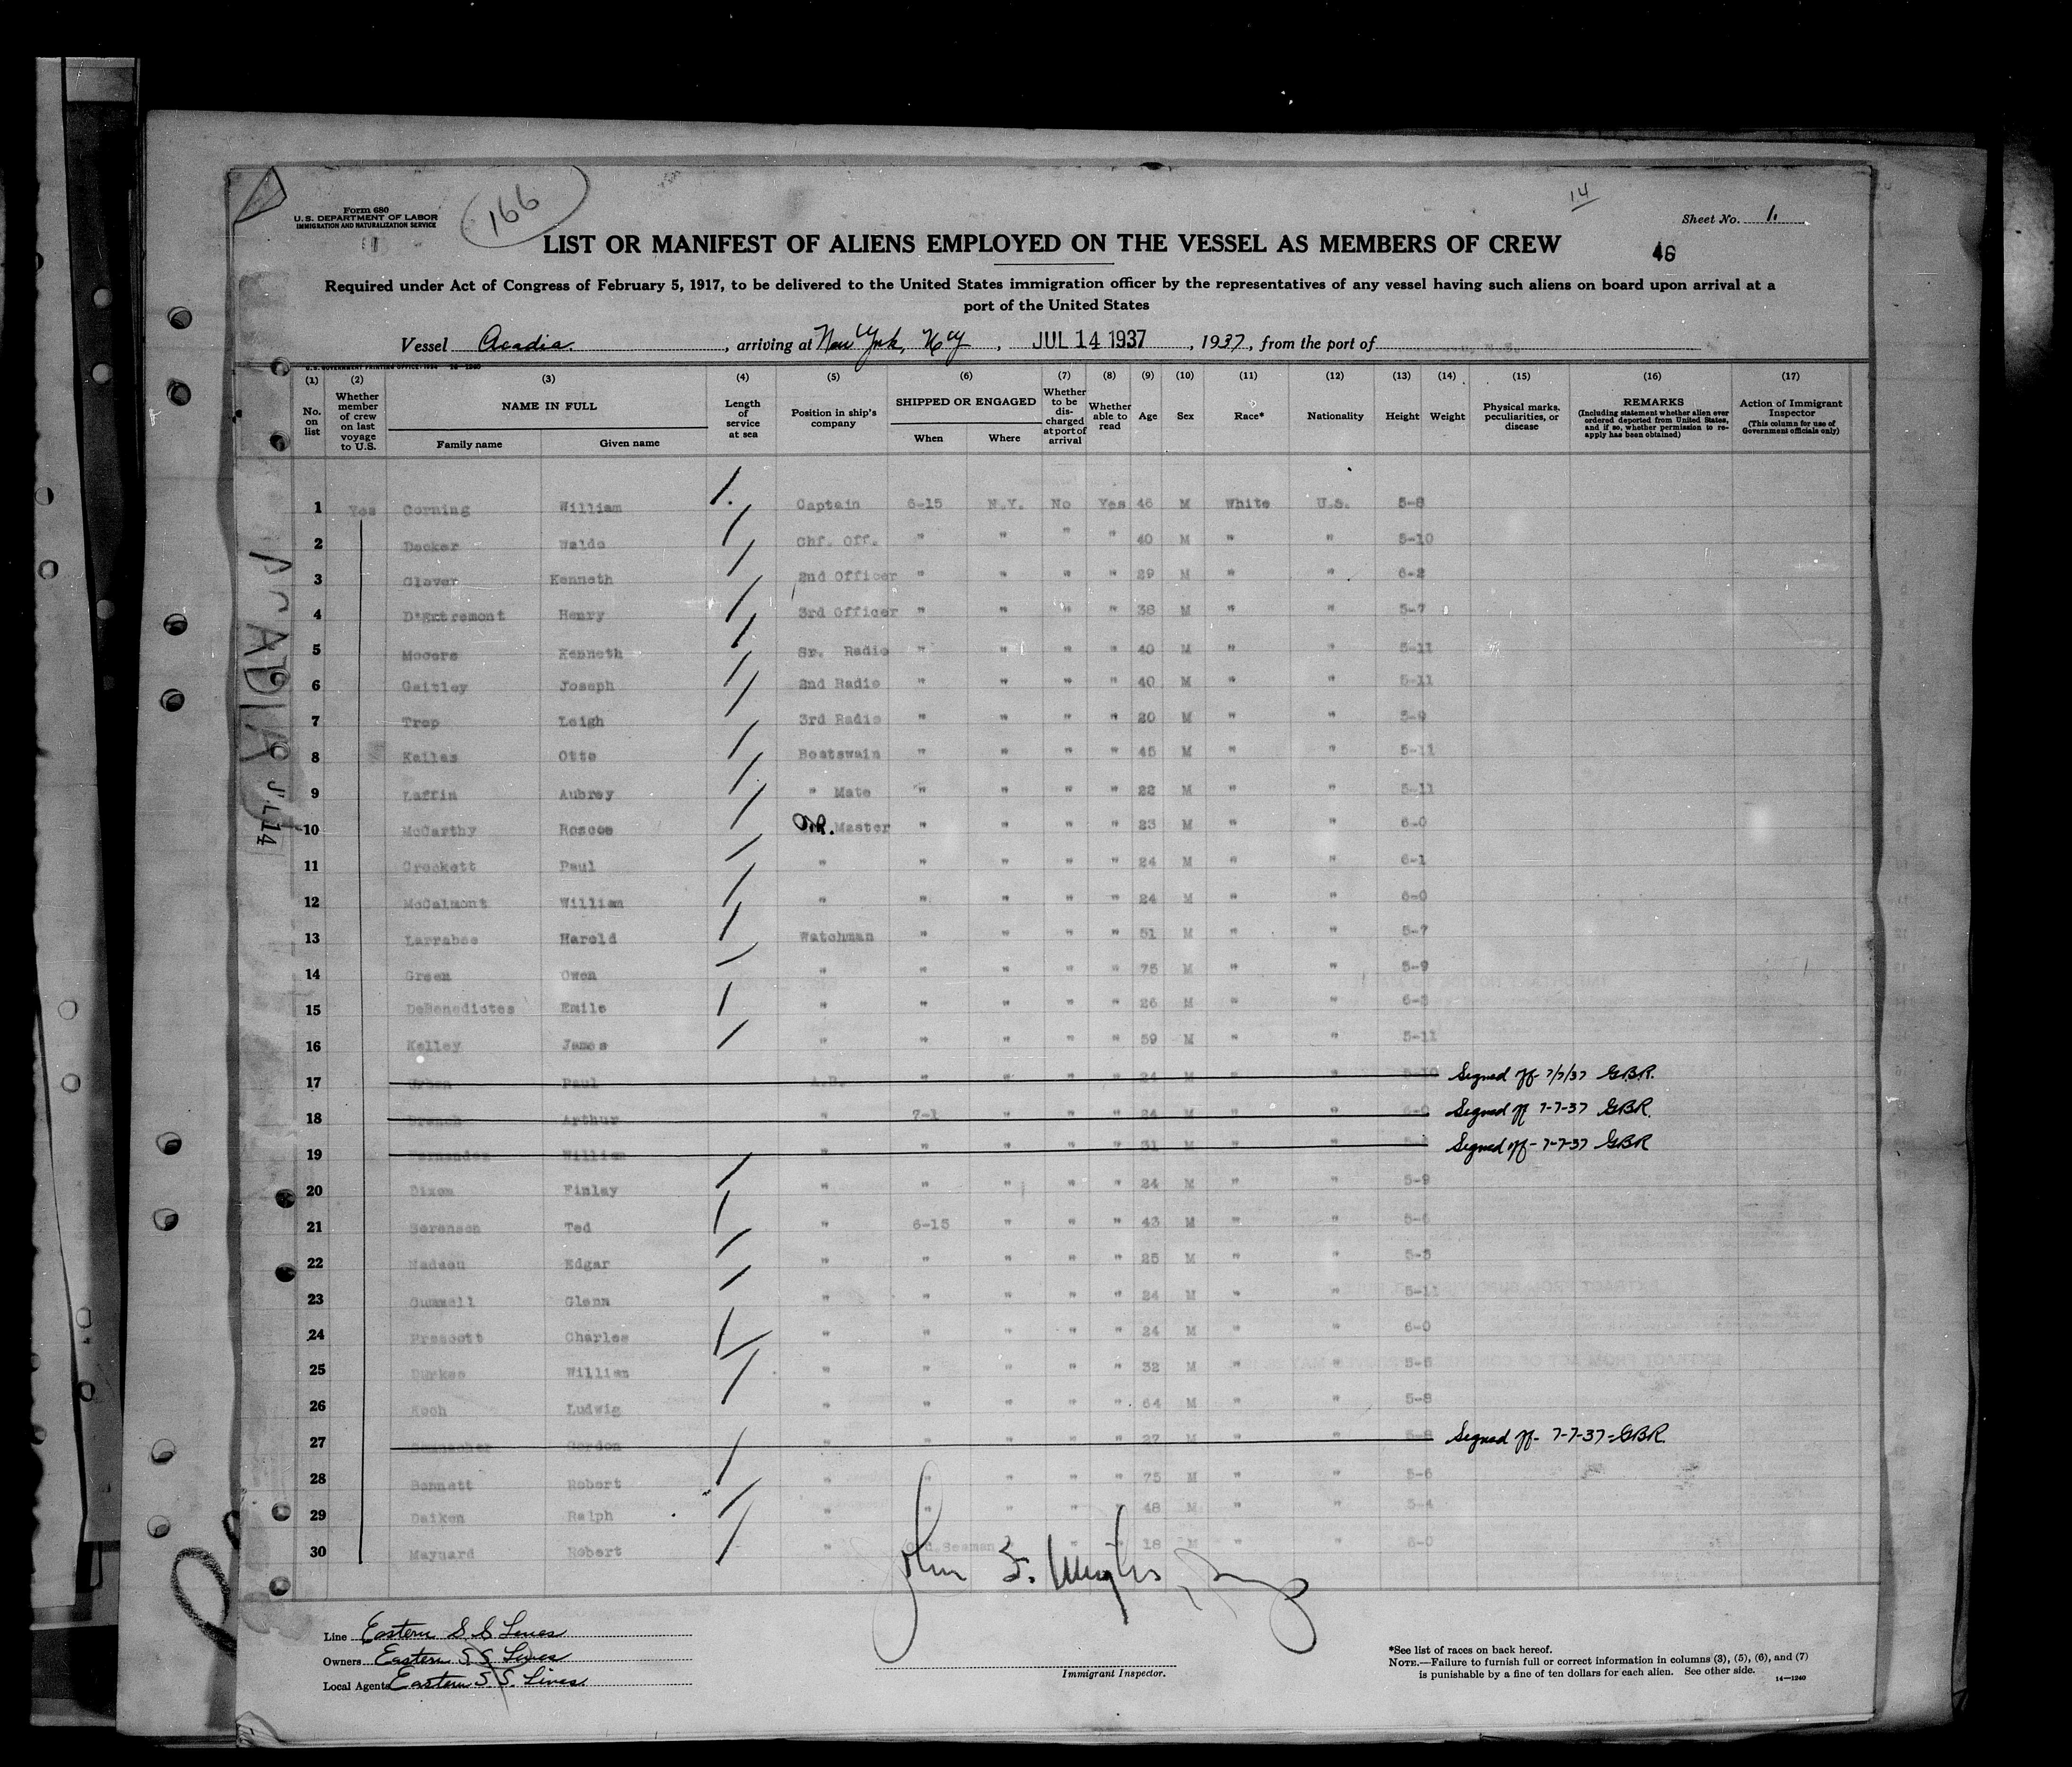 Form 680
U.S. DEPARTMENT OF LABOR
IMMIGRATION AND NATURALIZATION SERVICE
166
14
Sheet No. 1.
LIST OR MANIFEST OF ALIENS EMPLOYED ON THE VESSEL AS MEMBERS OF CREW
46
Required under Act of Congress of February 5, 1917, to be delivered to the United States immigration officer by the representatives of any vessel having such aliens on board upon arrival at a
port of the United States
Vessel Acadia , arriving at New York, N.Y. , JUL 14 1937 , 1937, from the port of
U.S. GOVERNMENT PRINTING OFFICE: 1934 14—1240
(1) (2) (3) (4) (5) (6) (7) (8) (9) (10) (11) (12) (13) (14) (15) (16) (17)
No. on list
Whether member of crew on last voyage to U.S.
NAME IN FULL
Family name Given name
Length of service at sea
Position in ship's company
SHIPPED OR ENGAGED
When Where
Whether to be discharged at port of arrival
Whether able to read
Age Sex Race* Nationality Height Weight
Physical marks, peculiarities, or disease
REMARKS
(Including statement whether alien ever ordered deported from United States, and if so, whether permission to reapply has been obtained)
Action of Immigrant Inspector
(This column for use of Government officials only)
1 Yes Corning William Captain 6-15 N.Y. No Yes 46 M White U.S. 5-8
2 Decker Waldo Chf. Off. " " " " 40 M " " 5-10
3 Glover Kenneth 2nd Officer " " " " 29 M " " 6-2
4 D'Entremont Henry 3rd Officer " " " " 38 M " " 5-7
5 Mooers Kenneth Sr. Radio " " " " 40 M " " 5-11
6 Gaitley Joseph 2nd Radio " " " " 40 M " " 5-11
7 Trop Leigh 3rd Radio " " " " 20 M " " 5-9
8 Kallas Otto Boatswain " " " " 45 M " " 5-11
9 Laffin Aubrey " Mate " " " " 22 M " " 5-11
10 McCarthy Roscoe Master " " " " 23 M " " 6-0
11 Crockett Paul " " " " " 24 M " " 6-1
12 McCalmont William " " " " " 24 M " " 6-0
13 Larrabee Harold Watchman " " " " 51 M " " 5-7
14 Green Owen " " " " " 75 M " " 5-9
15 DeBenedictes Emile " " " " " 26 M " "
16 Kelley James " " " " " 59 M " " 5-11
17 Urban Paul A.B. " " " " 24 M " " 5-10 Signed off 7/7/37 GBR.
18 Arthur " 7-1 " " " 24 M " " Signed off 7-7-37 GBR.
19 Fernandez William " " " " " 31 M " " Signed off - 7-7-37 GBR
20 Dixon Finlay " " " " " 24 M " " 5-9
21 Sorenson Ted " 6-15 " " " 43 M " "
22 Madsen Edgar " " " " " 25 M " "
23 Gummell Glenn " " " " " 24 M " " 5-11
24 Prescott Charles " " " " " 24 M " " 6-0
25 Durkee William " " " " " 32 M " "
26 Koch Ludwig " " " " " 64 M " " 5-8
27 Gordon " " " " " 27 M " " 5-8 Signed off - 7-7-37 - GBR.
28 Bennett Robert " " " " " 75 M " " 5-6
29 Daiken Ralph " " " " " 48 M " " 5-4
30 Maynard Robert " Ord. Seaman " " 18 M " "
ACADIA
JL 14
John
Line Eastern S.S. Lines
Owners Eastern S.S. Lines
Local Agents Eastern S.S. Lines
Immigrant Inspector.
*See list of races on back hereof.
NOTE.—Failure to furnish full or correct information in columns (3), (5), (6), and (7)
is punishable by a fine of ten dollars for each alien. See other side.
14—1240